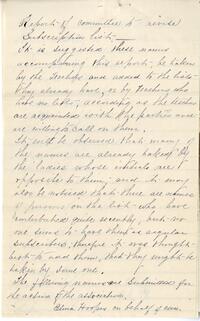 Report of committee to revise
Subscription list—
It is suggested these names
accompanying this report, be taken
by the Teachers and added to the lists
they already have, or by Teachers who
have no lists, according as the teachers
are acquainted with the parties and
are willing to call on them.
It will be observed that many of
the names are already taken by
the ladies whose initials are
opposite to them, and it may
also be noticed that there are names
of persons on the list who have
contributed quite recently, but no
one seems to have them as regular
subscribers, therefore it was thought
best to add them, that they might be
taken by some one.
The following names are submitted for
the action of the association.
on behalf of com.